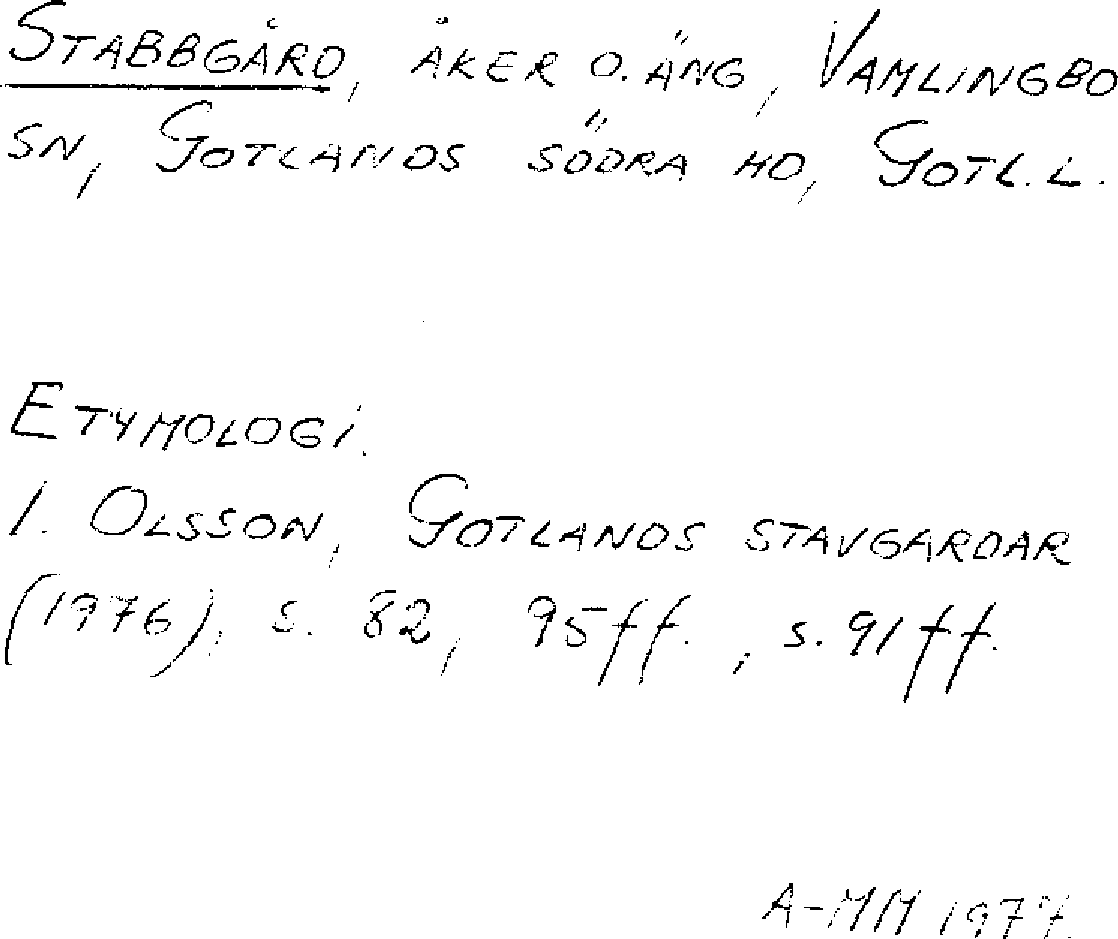 STABBGÅRD, ÅKER O. ÄNG, VAMLINGBO
SN, GOTLANDS SÖDRA HD, GOTL. L.
ETYMOLOGI.
I. OLSSON, GOTLANDS STAVGARDAR
(1976), s. 82, 95ff., s. 91ff.
A-MM 1977.